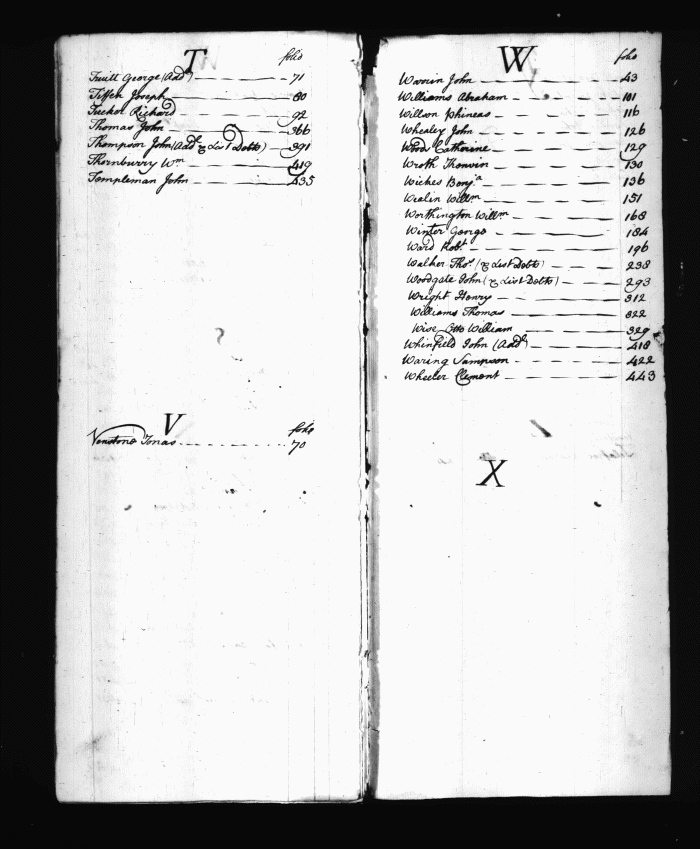 T
folio
Truitt George (Add.l) 71
Tiffen Joseph 80
Tucker Richard 92
Thomas John 366
Thompson John (Add.l & List Debts) 391
Thornburry W.m 419
Templeman John 435
V
folio
Venstone Jonas 70
W
folio
John 43
Williams Abraham 101
Willson Phineas 116
Whealey John 126
Wood Catherine 129
Wroth Thorvin 130
Wickes Benj.a 136
Will.m 151
Worthington Will.m 168
Winter George 184
Ward Rob.t 196
Walker Tho.s (& List Debts) 238
Woodgate John (& List Debts) 293
Wright Henry 312
Williams Thomas 322
Wise Otto William 329
Whinfield John (Add.l) 418
Waring Sampson 422
Wheeler Clement 443
X